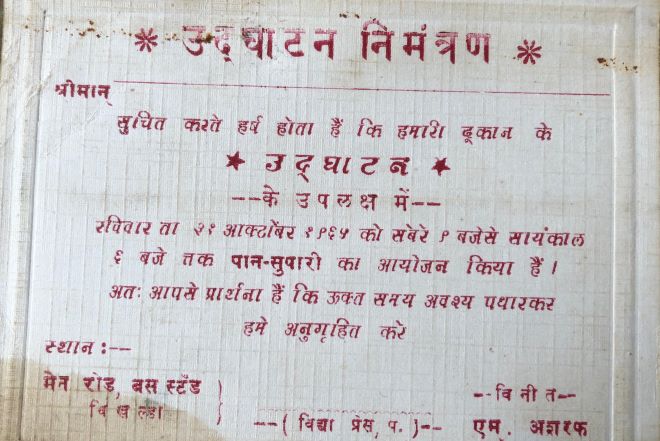 * उद्घाटन निमंत्रण *
श्रीमान्
सुचित करते हर्ष होता हैं कि हमारी दूकान के
★ उद्घाटन ★
--के उपलक्ष में--
रविवार ता ३१ आक्टोंबर १९६५ को सबेरे ९ बजेसे सायंकाल
६ बजे तक पान-सुपारी का आयोजन किया हैं ।
अतः आपसे प्रार्थना हैं कि ऊक्त समय अवश्य पधारकर
हमे अनुगृहित करे
स्थान :--
मेन रोड, बस स्टँड
--विनीत--
--( विद्या प्रेस, प. )--
एम. अशरफ